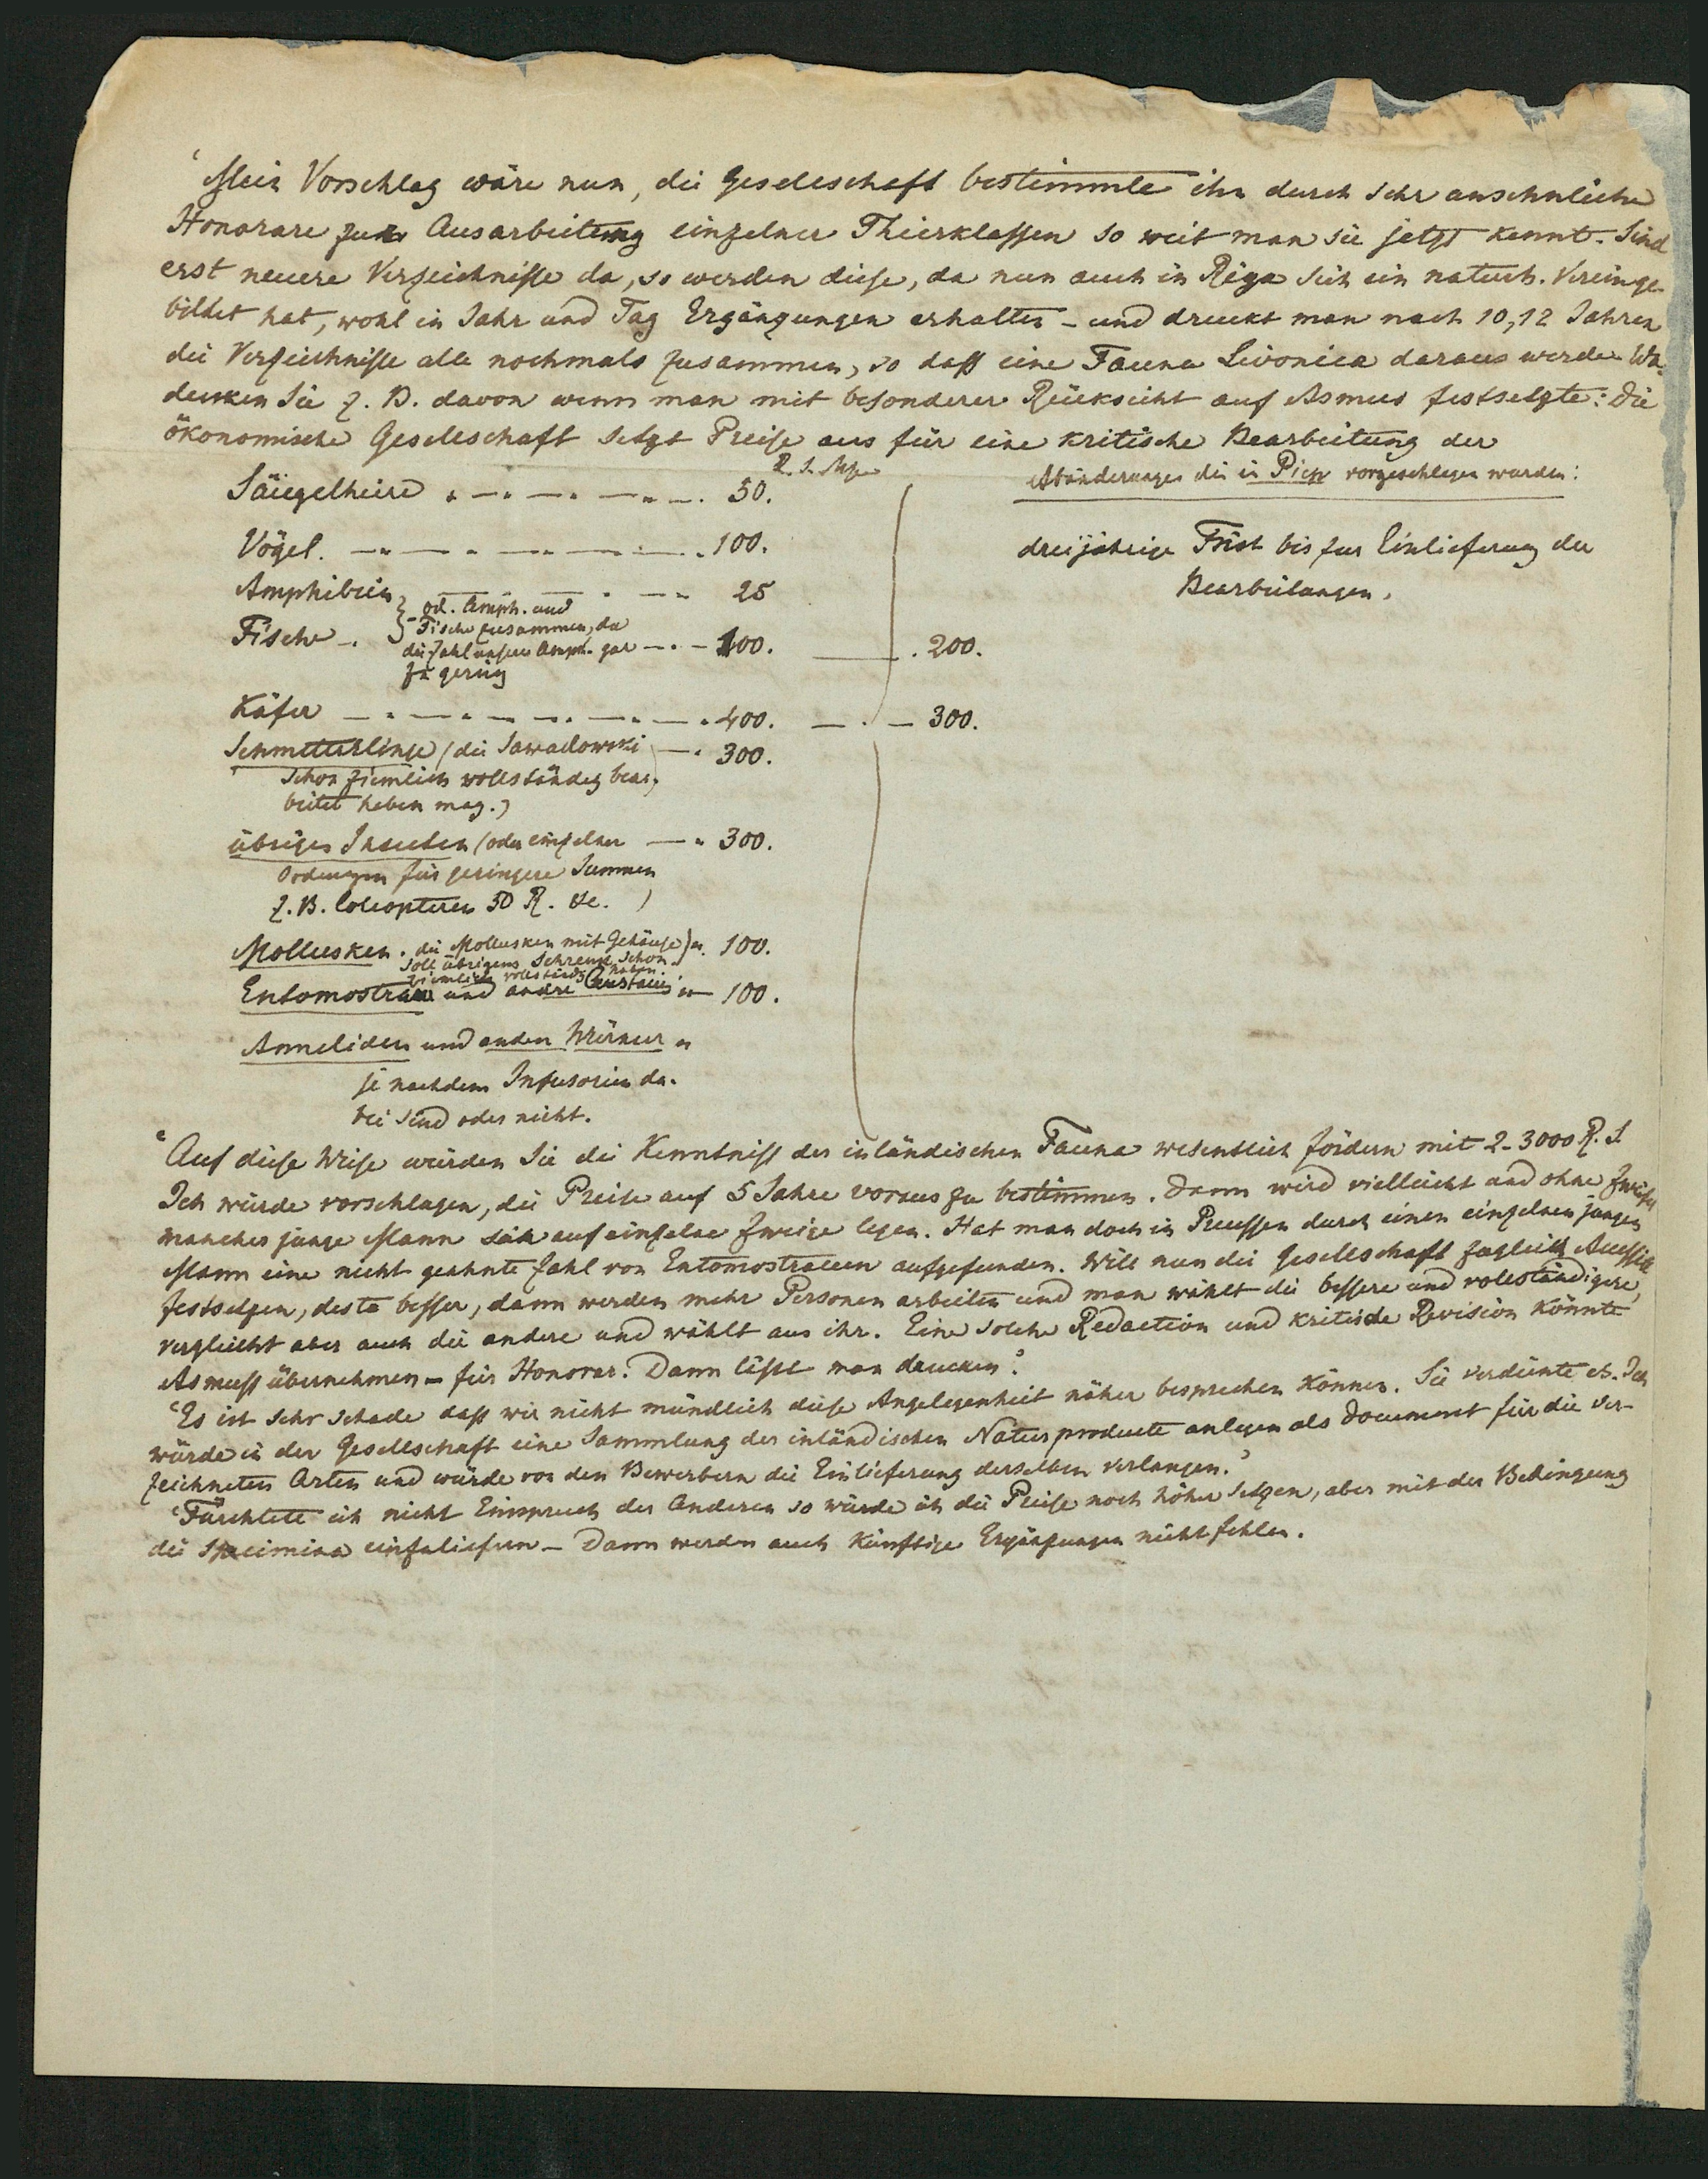 ‘Mein Vorschlag wäre nun, die Gesellschaft bestimmte ihn durch sehr ansehnliche
Honorare zur Ausarbeitung einzelner Thierklassen so weit man sie jetzt kennt. Sind
erst neuere Verzeichnisse da, so werden diese, da nun auch in Riga sich ein naturh. Verein ge-
bildet hat, wohl in Jahr und Tag Ergänzungen erhalten – und druckt man nach 10, 12 Jahren
die Verzeichnisse alle nochmals zusammen, so dass eine Fauna Livonica daraus werde. Was
denken Sie z. B. davon wenn man mit besonderer Rücksicht auf Asmus festsetzte: Die
ökonomische Gesellschaft setzt Preise aus für eine kritische Bearbeitung der
R. S. Mze
Abänderungen die in vorgeschlagen wurden:
Säugetheire . — . — . — . — . 50.
Vögel. — . — . — . — . 100.
dreijährige Frist bis zur Einlieferung der
Bearbeitungen.
Amphibien — . — . — 25
Fische —. od. Amph. und
Fische zusammen, da
die Zahl unserer Amph. gar — . — 100. — . 200.
zu gering
Käfer — . — . — . — . — . 400. — . — 300.
Schmetterlinge (die Sawadowski — . 300.
schon ziemlich vollständig bear-
beitet haben mag.)
übrigen Insecten (oder einzelner — . 300.
Ordnungen für geringere Summen
z. B. Coleopteren 50 R. etc. )
Mollusken. die Mollusken mit Gehäuse) . 100.
soll übrigens Schrenk schon
ziemlich vollständig haben.
Entomostraca und andre Crustaceen — 100.
Anneliden und anden Würmer "
je nachdem Infusorien da-
bei sind oder nicht.
‘Auf diese Weise würden Sie die Kenntniss der inländischen Fauna wesentlich fördern mit 2-3000 R. S.
Ich würde vorschlagen, die Preise auf 5 Jahre voraus zu bestimmen. Dann wird vielleicht und ohne Zweifel
mancher junge Mann sich auf einzelne Zweige legen. Hat man doch in Preussen durch einen einzelnen jungen
Mann eine nicht geahnte Zahl von Entomostraceen aufgefunden. Will nun die Gesellschaft zugleich
festsetzen, desto besser, dann werden mehr Personen arbeiten und man wählt die bessere und vollständigere,
vergleicht aber auch die andere und wählt aus ihr. Eine solche Redaction und kritische Revision könnte
Asmuss übernehmen – für Honorar. Dann lässt man drucken’.
‘Es ist sehr schade dass wir nicht mündlich diese Angelegenheit näher besprechen können. Sie verdiente es. Ich
würde in der Gesellschaft eine Sammlung der inländischen Naturproducte anlegen als Document für die ver-
zeichneten Arten und würde von den Bewerbern die Einlieferung derselben verlangen.’
‘Fürchtete ich nicht Einspruch der Anderen so würde ich die Preise noch höher setzen, aber mit der Bedingung
die Specimina einzuliefern – Dann werden auch künftige Ergänzungen nicht fehlen.